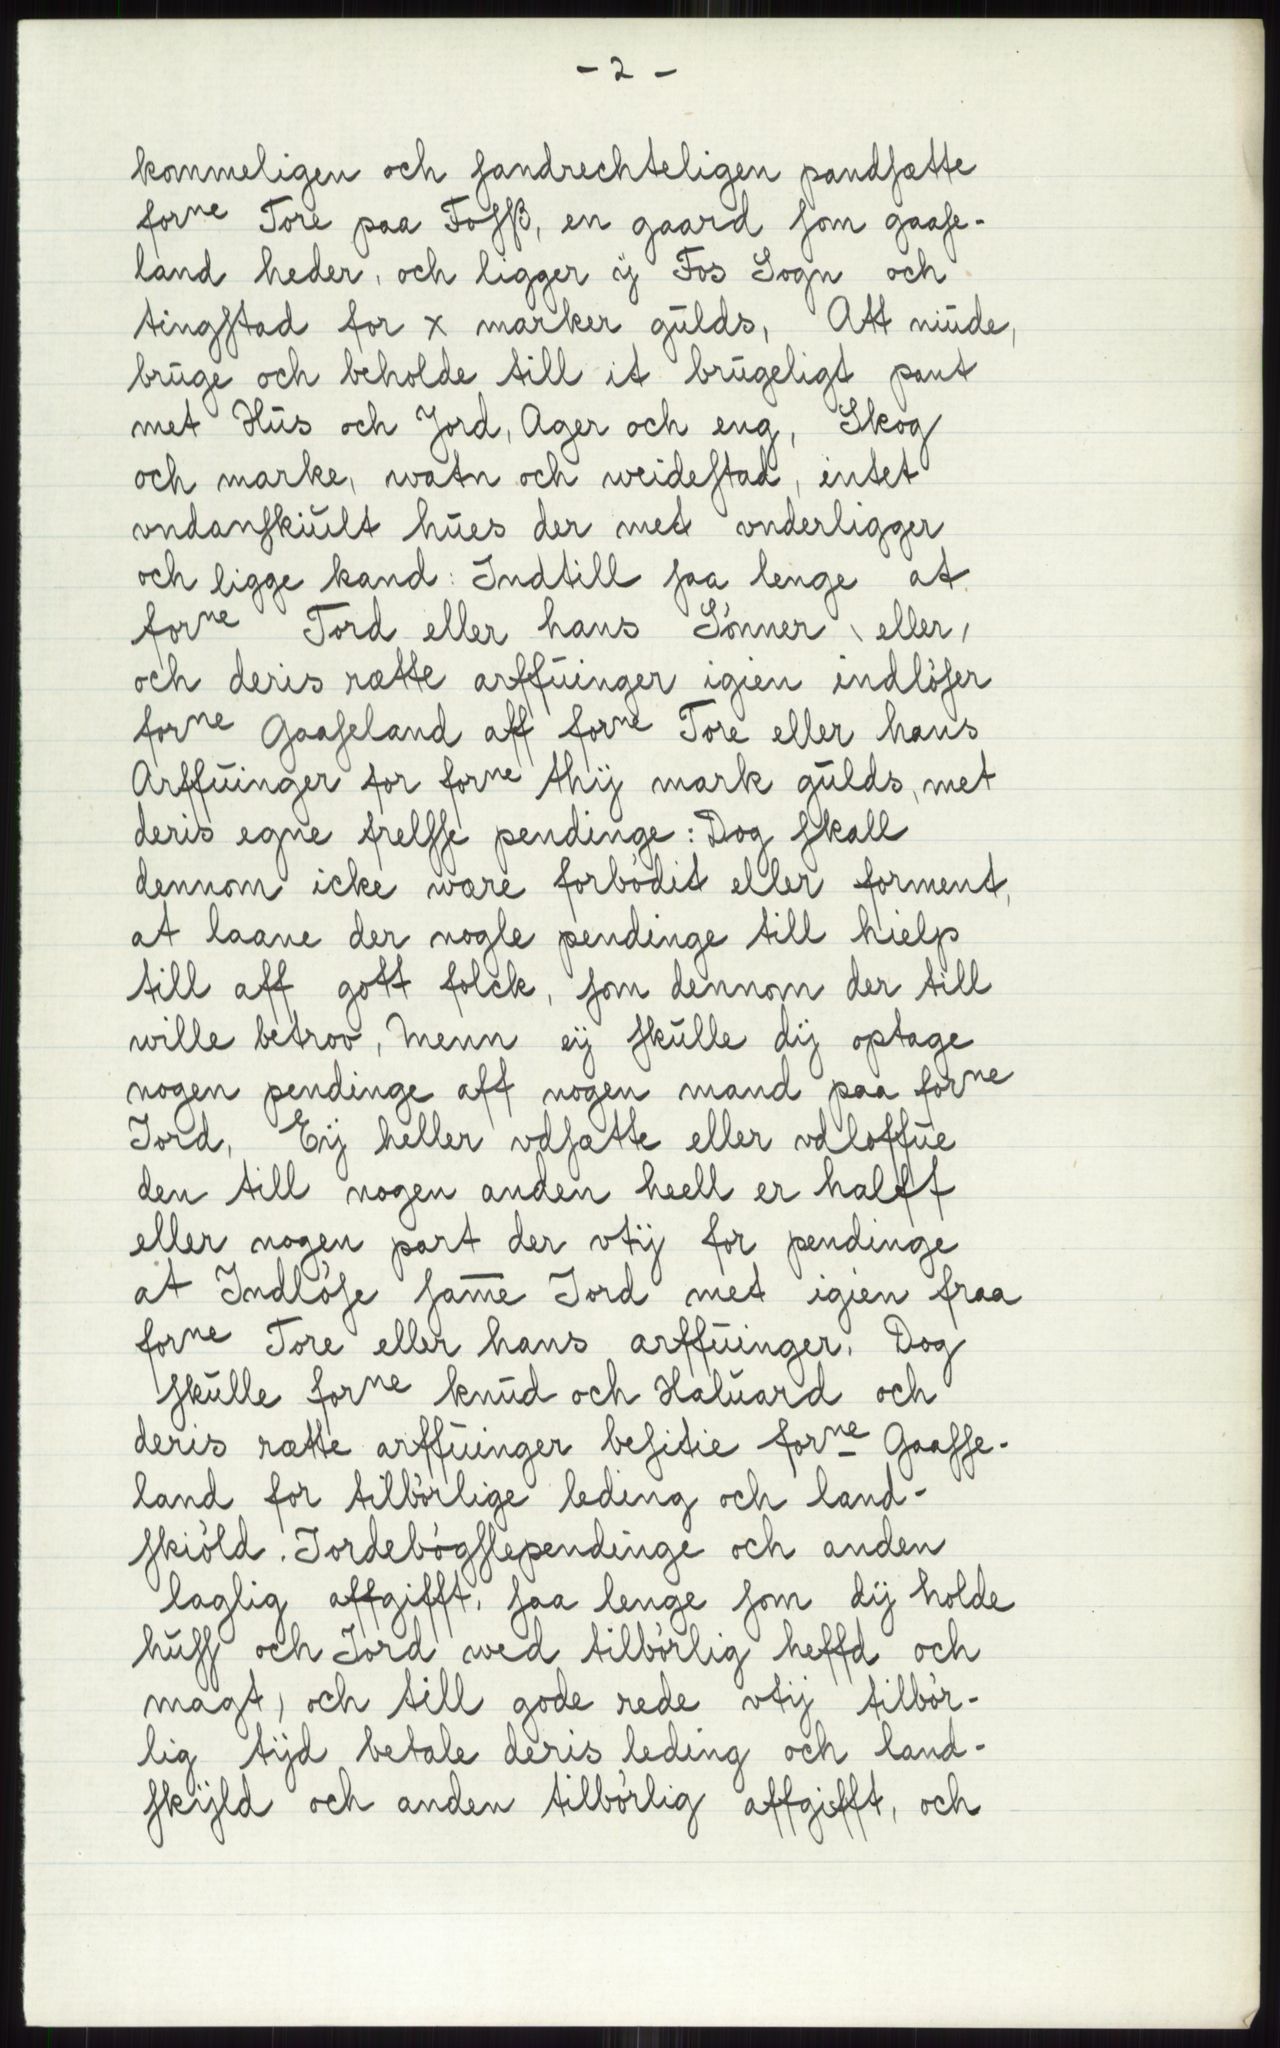 - 2 -
kommeligen och sandrechteligen pandsætte
forne Tore paa Fosß, en gaard som gaase-
land heder, och ligger ij Fos Sogn och
tingstad for x marker gůlds, Att niůde,
brůge och beholde till it brůgeligt pant
met Hůs och Jord, Ager och eng, Skog
och marke, watn och weidestad, intet
vndanskiůlt hůes der met vnderligger
och ligge kand: Indtill saa lenge at
forne Tord eller hans Sónner \ eller /
och deris rætte arffůinger igien indlóser
forne Gaaseland aff forne Tore eller hans
Arffůinger for forne thij mark gůlds, met
deris egne frelsse pendinge: Dog skall
dennom icke være forbódit eller forment,
at laane der nogle pendinge till hielp
till aff gott folck, som dennom der till
wille betroo, Menn eij skůlle dij optage
nogen pendinge aff nogen mand paa forne
Jord, Eij heller vdsætte eller vdloffůe
den till nogen anden heell er halff
eller nogen part der vtij for pendinge
at Indlóse same Jord met igien fraa
forne Tore eller hans arffůinger. Dog
skůlle forne knůd och Halůard och
deris rætte arffůinger besitie forne Gaasse-
land for tilbórlige leding och land-
skióld. Jordebógsslependinge och anden
laglig affgifft, saa lenge som dij holde
hůss och Jord wed tilbórlig heffd och
magt, och till gode rede vtij tilbór-
lig tijd betale deris leding och land-
skijld och anden tilbórlig affgifft, och